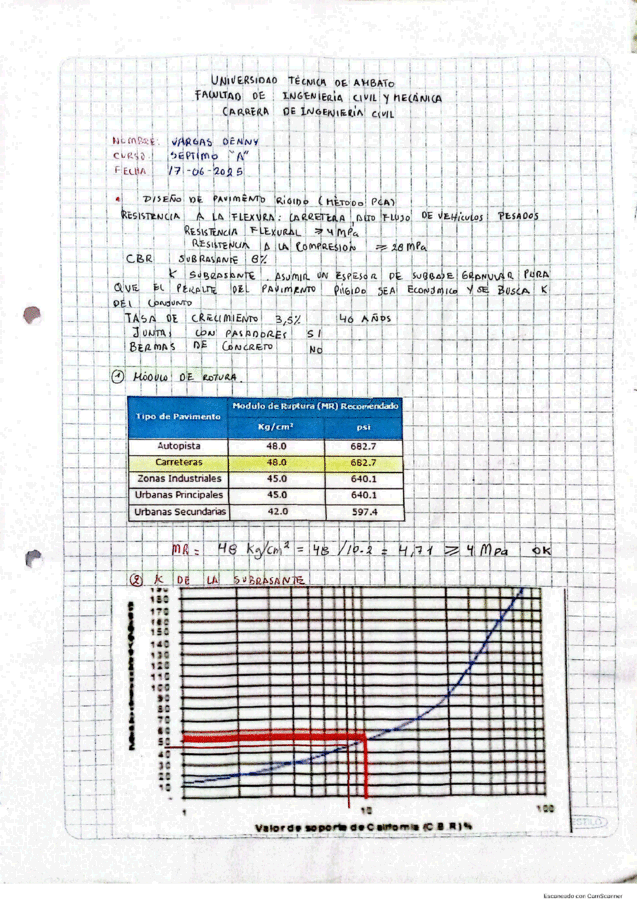 UNIVERSIDAD TÉCNICA DE AMBATO
FACULTAD DE INGENIERÍA CIVIL Y MECÁNICA
CARRERA DE INGENIERÍA CIVIL
NOMBRE: VARGAS DENNY
CURSO SÉPTIMO "A"
FECHA 17-06-2025
DISEÑO DE PAVIMENTO RÍGIDO (MÉTODO PCA)
RESISTENCIA A LA FLEXURA: CARRETERA, ALTO FLUJO DE VEHÍCULOS PESADOS
RESISTENCIA FLEXURAL ≥ 4 MPa
RESISTENCIA A LA COMPRESION ≥ 28 MPa
CBR SUBRASANTE 8%
K SUBRASANTE. ASUMIR UN ESPESOR DE SUBBASE GRANULAR PARA
QUE EL PERALTE DEL PAVIMENTO RÍGIDO SEA ECONÓMICO Y SE BUSCA K
DEL CONJUNTO
TASA DE CRECIMIENTO 3,5% 40 AÑOS
JUNTAS CON PASADORES SI
BERMAS DE CONCRETO NO
① MÓDULO DE ROTURA.
Tipo de Pavimento Modulo de Ruptura (MR) Recomendado
Kg/cm² psi
Autopista 48.0 682.7
Carreteras 48.0 682.7
Zonas Industriales 45.0 640.1
Urbanas Principales 45.0 640.1
Urbanas Secundarias 42.0 597.4
MR = 48 Kg/cm² = 48 /10.2 = 4,71 ≥ 4 Mpa OK
② K DE LA SUBRASANTE
180
170
160
150
140
130
120
110
100
90
80
70
60
50
40
30
20
10
1 10 100
Valor de soporte de California (C.B.R) %
Escaneado con CamScanner